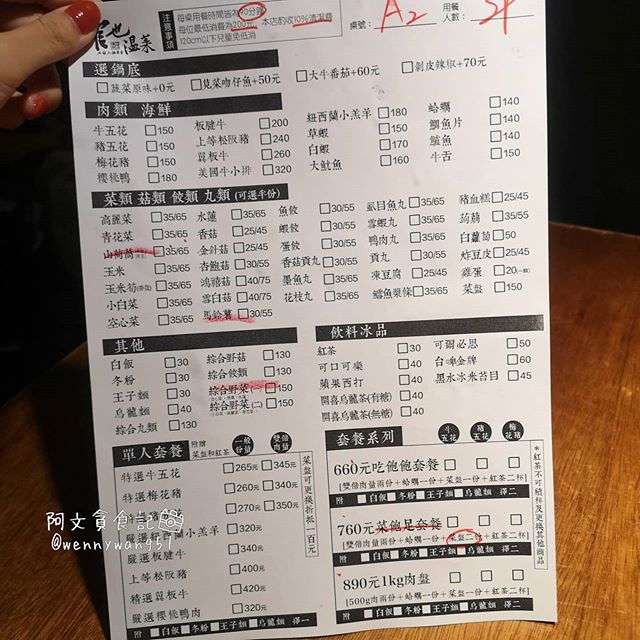 溫菜
注意事項
每桌用餐時間為90分鐘
每位最低消費為200元 本店酌收10%清潔費
120cm以下兒童免低消
桌號: A2
用餐人數:
選鍋底
蔬菜原味+0元 □大牛番茄+60元 □剝皮辣椒+70元
肉類 海鮮
牛五花 □150 板腱牛 □200 紐西蘭小羔羊 □180 蛤蠣 □140
豬五花 □150 上等松阪豬 □240 草蝦 □150 鯛魚片 □140
梅花豬 □150 翼板牛 □260 白蝦 □170 □140
櫻桃鴨 □180 美國牛小排 □320 大魷魚 □160 牛舌 □150
菜類 菇類 餃類 丸類 (可選半份)
高麗菜 □35/65 水蓮 □35/65 魚餃 □30/55 虱目魚丸 □35/65 豬血糕 □25/45
青花菜 □35/65 香菇 □25/45 蝦餃 □30/55 雪魚丸 □35/65 蒟蒻 □25/45
山茼蒿 □35/65 金針菇 □25/45 蛋餃 □30/55 鴨肉丸 □35/65 白蘿蔔 □50
玉米 □35/65 杏鮑菇 □30/55 香菇貢丸 □30/55 貢丸 □30/55 炸豆皮 □25/45
玉米筍 □35/65 鴻禧菇 □40/75 墨魚丸 □35/65 凍豆腐 □25/45 雞蛋 □20
小白菜 □35/65 雪白菇 □40/75 花枝丸 □35/65 鱈魚漿條 □35/65 菜盤 □150
空心菜 □35/65 馬鈴薯 □30/55
其他
白飯 □30 綜合野菇 □130
冬粉 □30 綜合餃類 □130
王子麵 □30 綜合野菜(一) □150
烏龍麵 □30 綜合野菜(二) □150
綜合丸類 □130
飲料冰品
紅茶 □30 可爾必思 □50
可口可樂 □40 台啤金牌 □60
蘋果西打 □40 黑水冰米苔目 □45
開喜烏龍茶(有糖) □40
開喜烏龍茶(無糖) □40
單人套餐 附贈菜盤和紅茶 一般份量 雙倍肉量
特選牛五花 □265元 □345元
特選梅花豬 □260元 □340元
□270元 □350元
小羔羊 □320元
嚴選板腱牛 □340元
上等松阪豬 □400元
精選翼板牛 □420元
嚴選櫻桃鴨肉 □320元
附 □白飯 □冬粉 □王子麵 □烏龍麵 擇一
菜盤可更換折抵一百元
套餐系列 牛五花 豬五花 梅花豬
660元吃飽飽套餐 □ □ □
[雙倍肉量兩份+蛤蠣一份+菜盤一份+紅茶二杯]
附 □白飯 □冬粉 □王子麵 □烏龍麵 擇二
760元菜飽足套餐 □ □ □
[雙倍肉量兩份+蛤蠣一份+菜盤二份+紅茶二杯]
附 □白飯 □冬粉 □王子麵 □烏龍麵 擇二
890元1kg肉盤 □ □ □
[500g肉兩份+蛤蠣一份+菜盤一份+紅茶二杯]
附 □白飯 □冬粉 □王子麵 □烏龍麵 擇二
*紅茶不可積杯及更換其他商品
阿文貪食記
@wennywang51